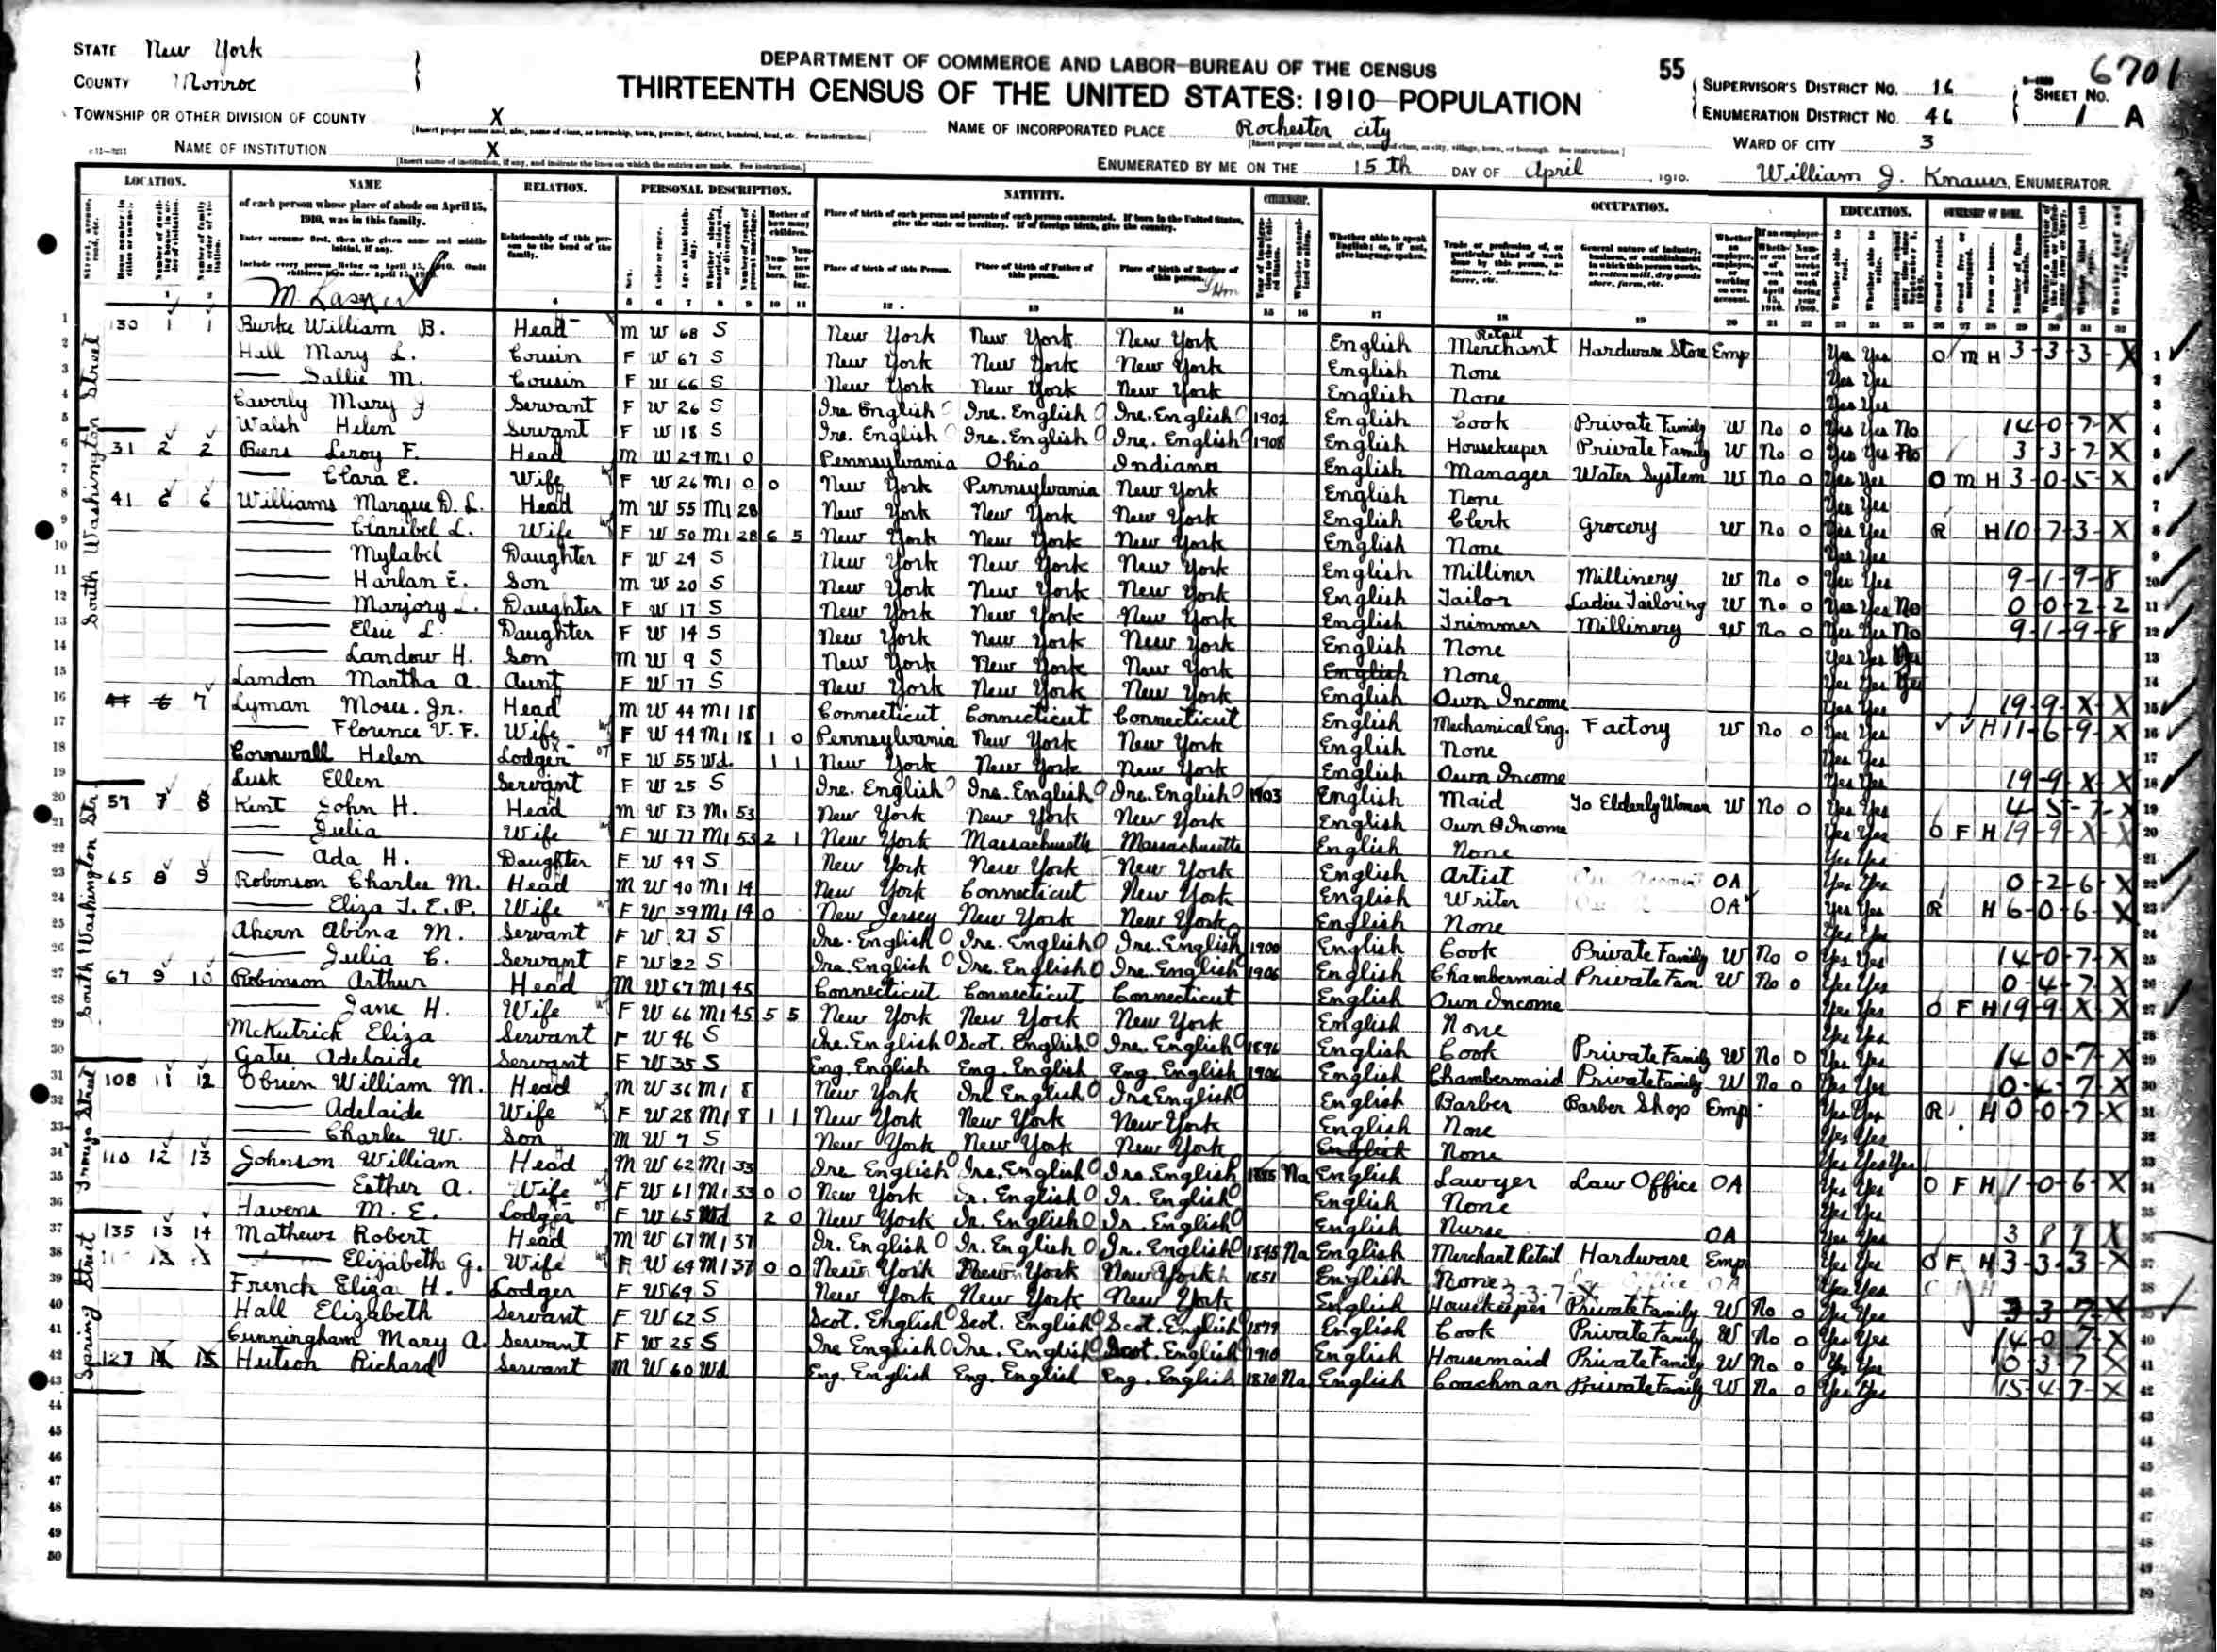 STATE New York
COUNTY Monroe
TOWNSHIP OR OTHER DIVISION OF COUNTY X
NAME OF INSTITUTION X
DEPARTMENT OF COMMERCE AND LABOR—BUREAU OF THE CENSUS
THIRTEENTH CENSUS OF THE UNITED STATES: 1910—POPULATION
NAME OF INCORPORATED PLACE Rochester city
ENUMERATED BY ME ON THE 15th DAY OF April, 1910.
55
SUPERVISOR'S DISTRICT No. 16
ENUMERATION DISTRICT No. 46
WARD OF CITY 3
SHEET No. 1 A
6701
William J. Knauer, ENUMERATOR.
LOCATION. NAME RELATION. PERSONAL DESCRIPTION. NATIVITY. CITIZENSHIP. OCCUPATION. EDUCATION. OWNERSHIP OF HOME.
of each person whose place of abode on April 15, 1910, was in this family.
Enter surname first, then the given name and middle initial, if any.
Include every person living on April 15, 1910. Omit children born since April 15, 1910.
Relationship of this person to the head of the family.
Place of birth of each person and parents of each person enumerated. If born in the United States, give the state or territory. If of foreign birth, give the country.
Place of birth of this Person. Place of birth of Father of this person. Place of birth of Mother of this person.
South Washington Street
1 130 1 1 Burke William B. Head M W 68 S New York New York New York English Retail Merchant Hardware Store Emp Yes Yes O M H 3-3-3-X
2 Hall Mary L. Cousin F W 67 S New York New York New York English None Yes Yes
3 —— Sallie M. Cousin F W 66 S New York New York New York English None Yes Yes
4 Caverly Mary J Servant F W 26 S Ire English Ire. English Ire. English 1902 English Cook Private Family W No 0 Yes Yes No 14-0-7-X
5 Walsh Helen Servant F W 18 S Ire. English Ire. English Ire. English 1908 English Housekeeper Private Family W No 0 Yes Yes No 3-3-7-X
6 31 2 2 Biers Leroy F. Head M W 29 M1 0 Pennsylvania Ohio Indiana English Manager Water System W No 0 Yes Yes O M H 3-0-5-X
7 —— Clara E. Wife F W 26 M1 0 0 New York Pennsylvania New York English None Yes Yes
8 41 6 6 Williams Marque D. L. Head M W 55 M1 28 New York New York New York English Clerk Grocery W No 0 Yes Yes R H 10-7-3-X
9 —— Claribel L. Wife F W 50 M1 28 6 5 New York New York New York English None Yes Yes
10 —— Mylabel Daughter F W 24 S New York New York New York English Milliner Millinery W No 0 Yes Yes 9-1-9-8
11 —— Harlan E. Son M W 20 S New York New York New York English Tailor Ladies Tailoring W No 0 Yes Yes No 0-0-2-2
12 —— Marjory L. Daughter F W 17 S New York New York New York English Trimmer Millinery W No 0 Yes Yes No 9-1-9-8
13 —— Elsie L. Daughter F W 14 S New York New York New York English None Yes Yes Yes
14 —— Landow H. Son M W 9 S New York New York New York English None Yes Yes Yes
15 Landon Martha A. Aunt F W 77 S New York New York New York English Own Income Yes Yes 19-9-X-X
16 41 6 7 Lyman Moses. Jr. Head M W 44 M1 18 Connecticut Connecticut Connecticut English Mechanical Eng. Factory W No 0 Yes Yes H 11-6-9-X
17 —— Florence V. F. Wife F W 44 M1 18 1 0 Pennsylvania New York New York English None Yes Yes
18 Cornwall Helen Lodger F W 55 Wd. 1 1 New York New York New York English Own Income Yes Yes 19-9-X-X
19 Lusk Ellen Servant F W 25 S Ire. English Ire. English Ire. English 1903 English Maid To Elderly Woman W No 0 Yes Yes 4-5-7-X
South Washington Str.
20 57 7 8 Kent John H. Head M W 83 M1 53 New York New York New York English Own Income Yes Yes O F H 19-9-X-X
21 —— Julia Wife F W 77 M1 53 2 1 New York Massachusetts Massachusetts English None Yes Yes
22 —— Ada H. Daughter F W 49 S New York New York New York English Artist OA Yes Yes 0-2-6-X
23 65 8 9 Robinson Charles M. Head M W 40 M1 14 New York Connecticut New York English Writer OA Yes Yes R H 6-0-6-X
24 —— Eliza T. E. P. Wife F W 39 M1 14 0 New Jersey New York New York English None Yes Yes
25 Ahern Abina M. Servant F W 27 S Ire. English Ire. English Ire. English 1900 English Cook Private Family W No 0 Yes Yes 14-0-7-X
26 —— Julia C. Servant F W 22 S Ire. English Ire. English Ire. English 1906 English Chambermaid Private Fam W No 0 Yes Yes 0-4-7-X
27 67 9 10 Robinson Arthur Head M W 67 M1 45 Connecticut Connecticut Connecticut English Own Income Yes Yes O F H 19-9-X-X
28 —— Jane H. Wife F W 66 M1 45 5 5 New York New York New York English None Yes Yes
29 McKutrick Eliza Servant F W 46 S Ire. English Scot. English Ire. English 1896 English Cook Private Family W No 0 Yes Yes 14-0-7-X
30 Gates Adelaide Servant F W 35 S Eng. English Eng. English Eng. English 1906 English Chambermaid Private Family W No 0 Yes Yes 0-4-7-X
Troup Street
31 108 11 12 Obrien William M. Head M W 36 M1 8 New York Ire English Ire English English Barber Barber Shop Emp Yes Yes R H 0-0-7-X
32 —— Adelaide Wife F W 28 M1 8 1 1 New York New York New York English None Yes Yes
33 —— Charles W. Son M W 7 S New York New York New York English None Yes Yes Yes
34 110 12 13 Johnson William Head M W 62 M1 33 Ire English Ire. English Ire. English Na English Lawyer Law Office OA Yes Yes O F H 1-0-6-X
35 —— Esther A. Wife F W 61 M1 33 0 0 New York Ir. English Ir. English English None Yes Yes
36 Havens M. E. Lodger F W 65 Wd 2 0 New York Ir. English Ir. English English Nurse OA Yes Yes 3 8 7 X
Spring Street
37 135 13 14 Mathews Robert Head M W 67 M1 37 Ir. English Ir. English Ir. English 1845 Na English Merchant Retail Hardware Emp Yes Yes O F H 3-3-3-X
38 —— Elizabeth G. Wife F W 64 M1 37 0 0 New York New York New York 1851 English None Yes Yes
39 French Eliza H. Lodger F W 69 S New York New York New York English Housekeeper Private Family W No 0 Yes Yes 3-3-7-X
40 Hall Elizabeth Servant F W 62 S Scot. English Scot. English Scot. English 1879 English Cook Private Family W No 0 Yes Yes 14-0-7-X
41 Cunningham Mary A. Servant F W 25 S Ire English Ire. English Scot. English 1910 English Housemaid Private Family W No 0 Yes Yes 0-3-7-X
42 127 14 15 Hutson Richard Servant M W 60 Wd Eng. English Eng. English Eng. English 1870 Na English Coachman Private Family W No 0 Yes Yes 15-4-7-X
43
44
45
46
47
48
49
50